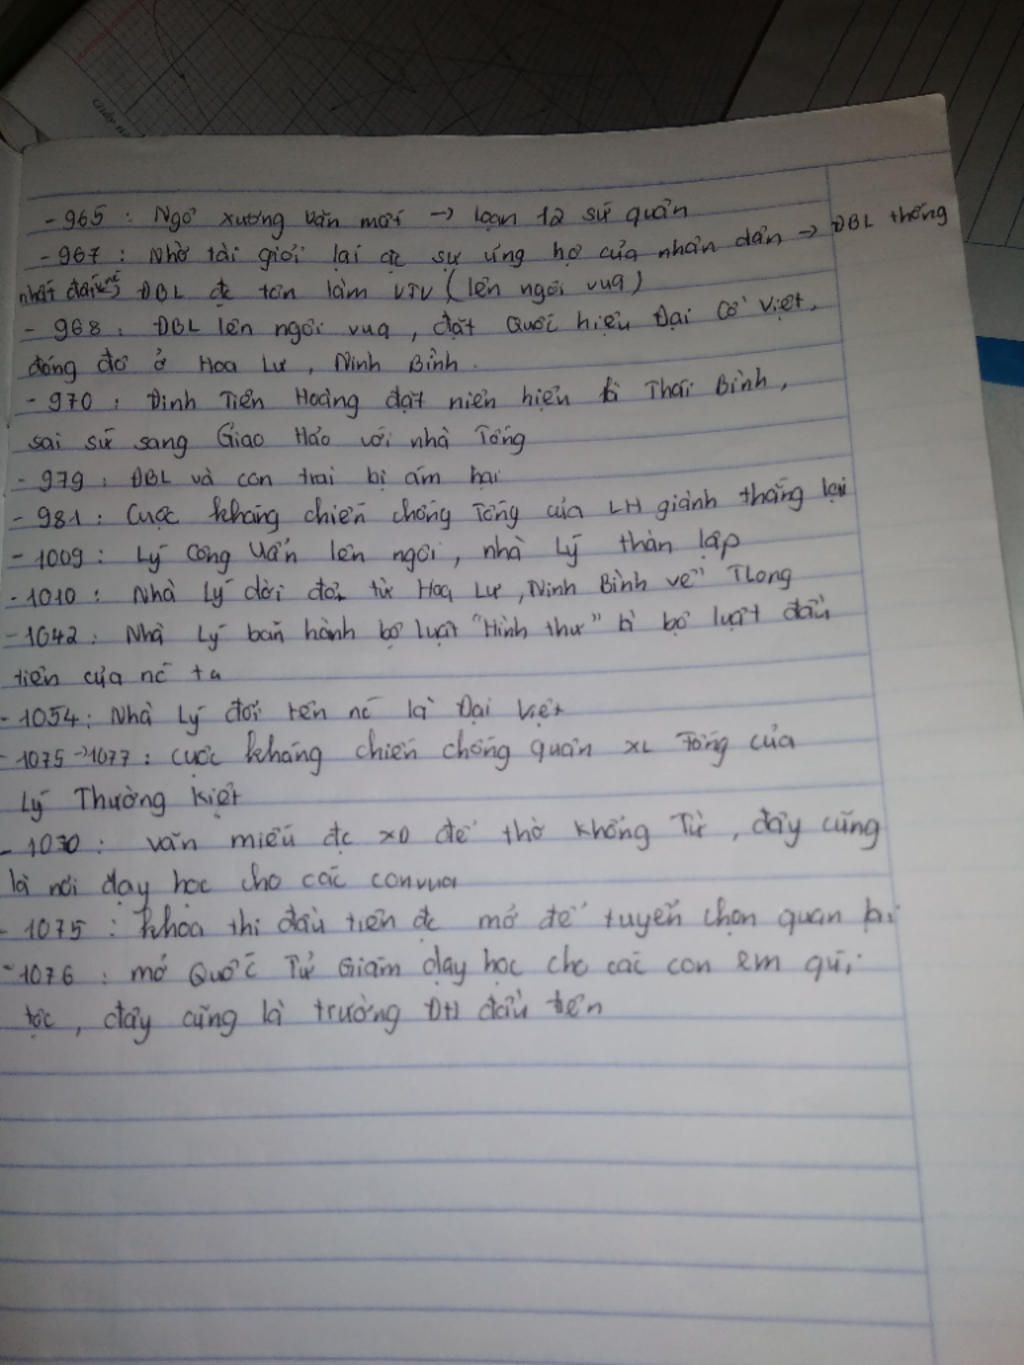 - 965 : Ngô Xương Văn mất -> loạn 12 sứ quân
- 967 : Nhờ tài giỏi lại đc sự ủng hộ của nhân dân -> ĐBL thống
nhất đất nc ĐBL đc tôn làm VTV (lên ngôi vua)
- 968 : ĐBL lên ngôi vua, đặt Quốc hiệu Đại Cồ Việt,
đóng đô ở Hoa Lư, Ninh Bình.
- 970 : Đinh Tiên Hoàng đặt niên hiệu là Thái Bình,
sai sứ sang Giao Hảo với nhà Tống
- 979 : ĐBL và con trai bị ám hại
- 981 : Cuộc kháng chiến chống Tống của LH giành thắng lợi
- 1009 : Lý Công Uẩn lên ngôi, nhà Lý thàn lập
- 1010 : Nhà Lý dời đô từ Hoa Lư, Ninh Bình về TLong
- 1042 : Nhà Lý ban hành bộ luật "Hình thư" là bộ luật đầu
tiên của nc ta
- 1054 : Nhà Lý đổi tên nc là Đại Việt
- 1075 -> 1077 : Cuộc kháng chiến chống quân XL Tống của
Lý Thường Kiệt
- 1070 : Văn miếu đc XD để thờ Khổng Tử, đây cũng
là nơi dạy học cho các con vua
- 1075 : Khoa thi đầu tiên đc mở để tuyển chọn quan lại
- 1076 : mở Quốc Tử Giám dạy học cho các con em quí
tộc, đây cũng là trường ĐH đầu tiên